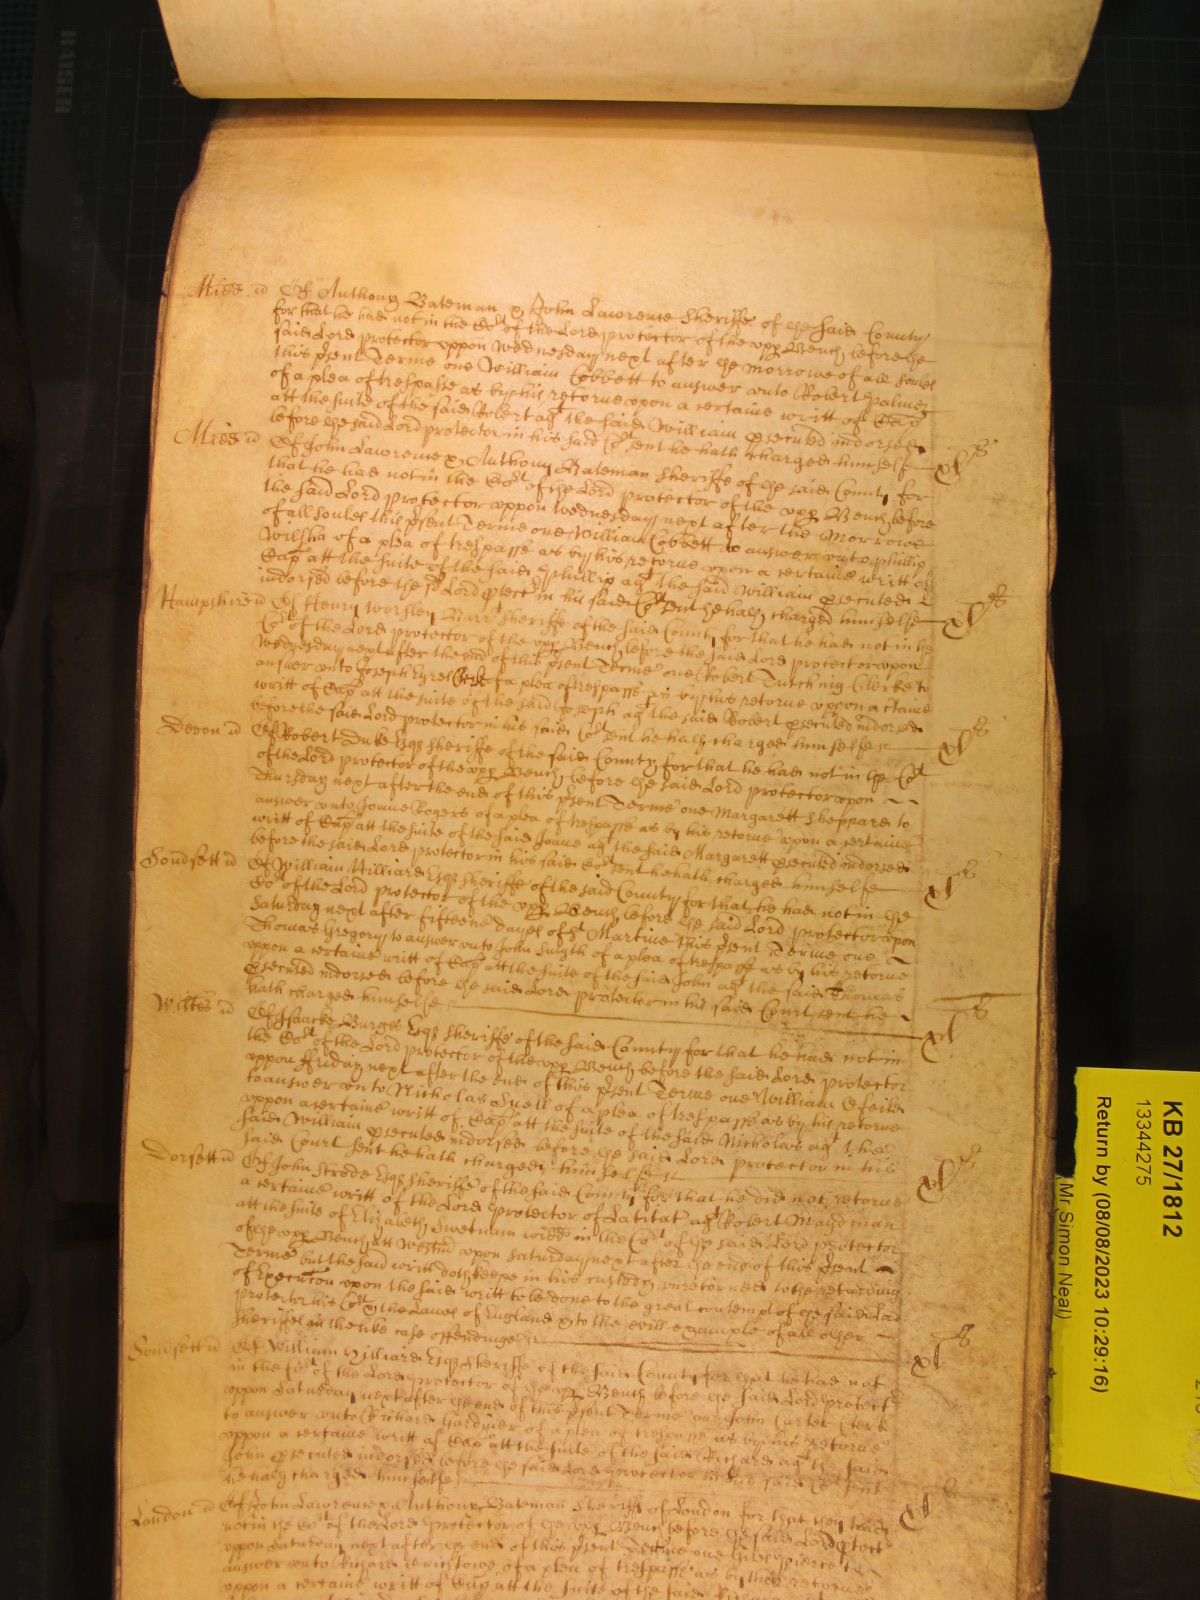 Midd ss Of Anthony Bateman & John Lawrence Sheriffe of the said County
for that he had not in the Cort of the Lord protector of the vpp Bench before the
said Lord protector vppon Wednesday next after the morrowe of all Soules
this pſent Terme one William Cobbett to answer vnto Robert Palmer
of a plea of trespasse as by his retorne vpon a certaine writt of Cap
att the suite of the said Robert agt the said William executed indorsed
before the said Lord protector in his said Cort sent he hath charged himselfe xls
Midd ss Of John Lawrence & Anthony Bateman Sheriffe of the said County for
that he had not in the Cort of the Lord protector of the vpp Bench before
the said Lord protector vppon Wednesday next after the Morrowe
of all Soules this pſent Terme one William Cobbett to answer vnto Phillip
Wilsha of a plea of trespasse as by his retorne vpon a certaine writt of
Cap att the suite of the said Phillip agt the said William executed &
indorsed before the sd Lord ptect in his said Cort sent he hath charged himselfe xls
Hampshire ss Of Henry Worsley Barrt Sheriffe of the said County for that he had not in the
Cort of the Lord protector of the vpp Bench before the said Lord protector vpon
Wednesday next after the end of this pſent Terme one Robert Dutching Clerke to
answer vnto Joseph Eyres Clerke of a plea of trespasse as by his retorne vppon a ctaine
writt of Cap att the suite of the said Joseph agt the said Robert executed indorsed
before the said Lord protector in his said Cort sent he hath charged himselfe xls
Devon ss Of Robert Duke Esqr Sheriffe of the said County for that he had not in the Cort
of the Lord protector of the vpp Bench before the said Lord protector vpon
Thursday next after the end of this pſent Terme one Margarett Sheppard to
answer vnto Joane Rogers of a plea of trespasse as by his retorne vpon a certaine
writt of Cap att the suite of the said Joane agt the said Margarett executed indorsed
before the said Lord protector in his said Cort sent he hath charged himselfe xls
Somsett ss Of William Hilliard Esqr Sheriffe of the said County for that he had not in the
Cort of the Lord protector of the vpp Bench before the said Lord protector vpon
Saturday next after fifteene dayes of St Martine this pſent Terme one
Thomas Gregory to answer vnto John Smyth of a plea of trespasse as by his retorne
vppon a certaine writt of Cap att the suite of the said John agt the said Thomas
executed indorsed before the said Lord protector in his said Court sent he
hath charged himselfe xls
Wiltes ss Of Isaacke Burges Esqr Sheriffe of the said County for that he had not in
the Cort of the Lord protector of the vpp Bench before the said Lord protector
vppon ffriday next after the end of this pſent Terme one William
to answer vnto Nicholas Snell of a plea of trespasse as by his retorne
vppon a certaine writt of Cap att the suite of the said Nicholas agt the
said William executed indorsed before the said Lord protector in his
said Court sent he hath charged himselfe xls
Dorsett ss Of John Strode Esqr Sheriffe of the said County for that he did not retorne
a certaine writt of the Lord protector of Latitat agt Robert Maydman
att the suite of Elizabeth Swetnam widd in the Cort of the said Lord protector
of the vpp Bench att Westmr vpon Saturday next after the end of this pſent
Terme but the said writt doth keepe in his custody vnretorned to the retarding
of Execucon vpon the said writt to be done to the great contempt of the said Lord
protector his Cort & the Lawes of England & to the evill example of all other
Sheriffes in the like case offendinge xls
Somsett ss Of William Hilliard Esqr Sheriffe of the said County for that he had not
in the Cort of the Lord protector of the vpp Bench before the said Lord protectr
vppon Saturday next after the end of this pſent Terme one John Carter Clerk
to answer vnto Richard Gardiner of a plea of trespasse as by his retorne
vppon a certaine writt of Cap att the suite of the said Richard agt the said
John executed indorsed before the said Lord protector in his said Cort sent
he hath charged himselfe
London ss Of John Lawrence & Anthony Bateman Sheriffs of London for that they had
not in the Cort of the Lord protector of the vpp Bench before the said Lord ptect
vppon Saturday next after the end of this pſent Terme one Pierce to
answer vnto Richard of a plea of trespasse as by their retorne
vppon a certaine writt of Cap att the suite of the said Richard
KB 27/1812
13344275
Return by (08/08/2023 10:29:16)
Mr Simon Neal)
KAISER